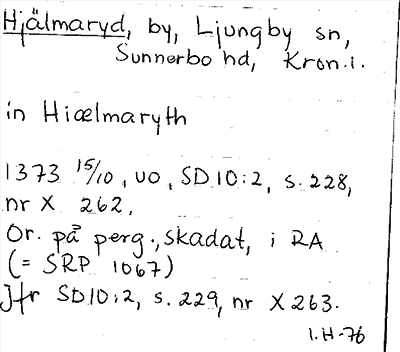 Hjälmaryd, by, Ljungby sn,
Sunnerbo hd, Kron.l.
in Hiælmaryth
1373 15/10, uo, SD 10:2, s. 228,
nr X 262,
Or. på perg., skadat, i RA
(= SRP 1067)
Jfr SD 10:2, s. 229, nr X 263.
I.H-76